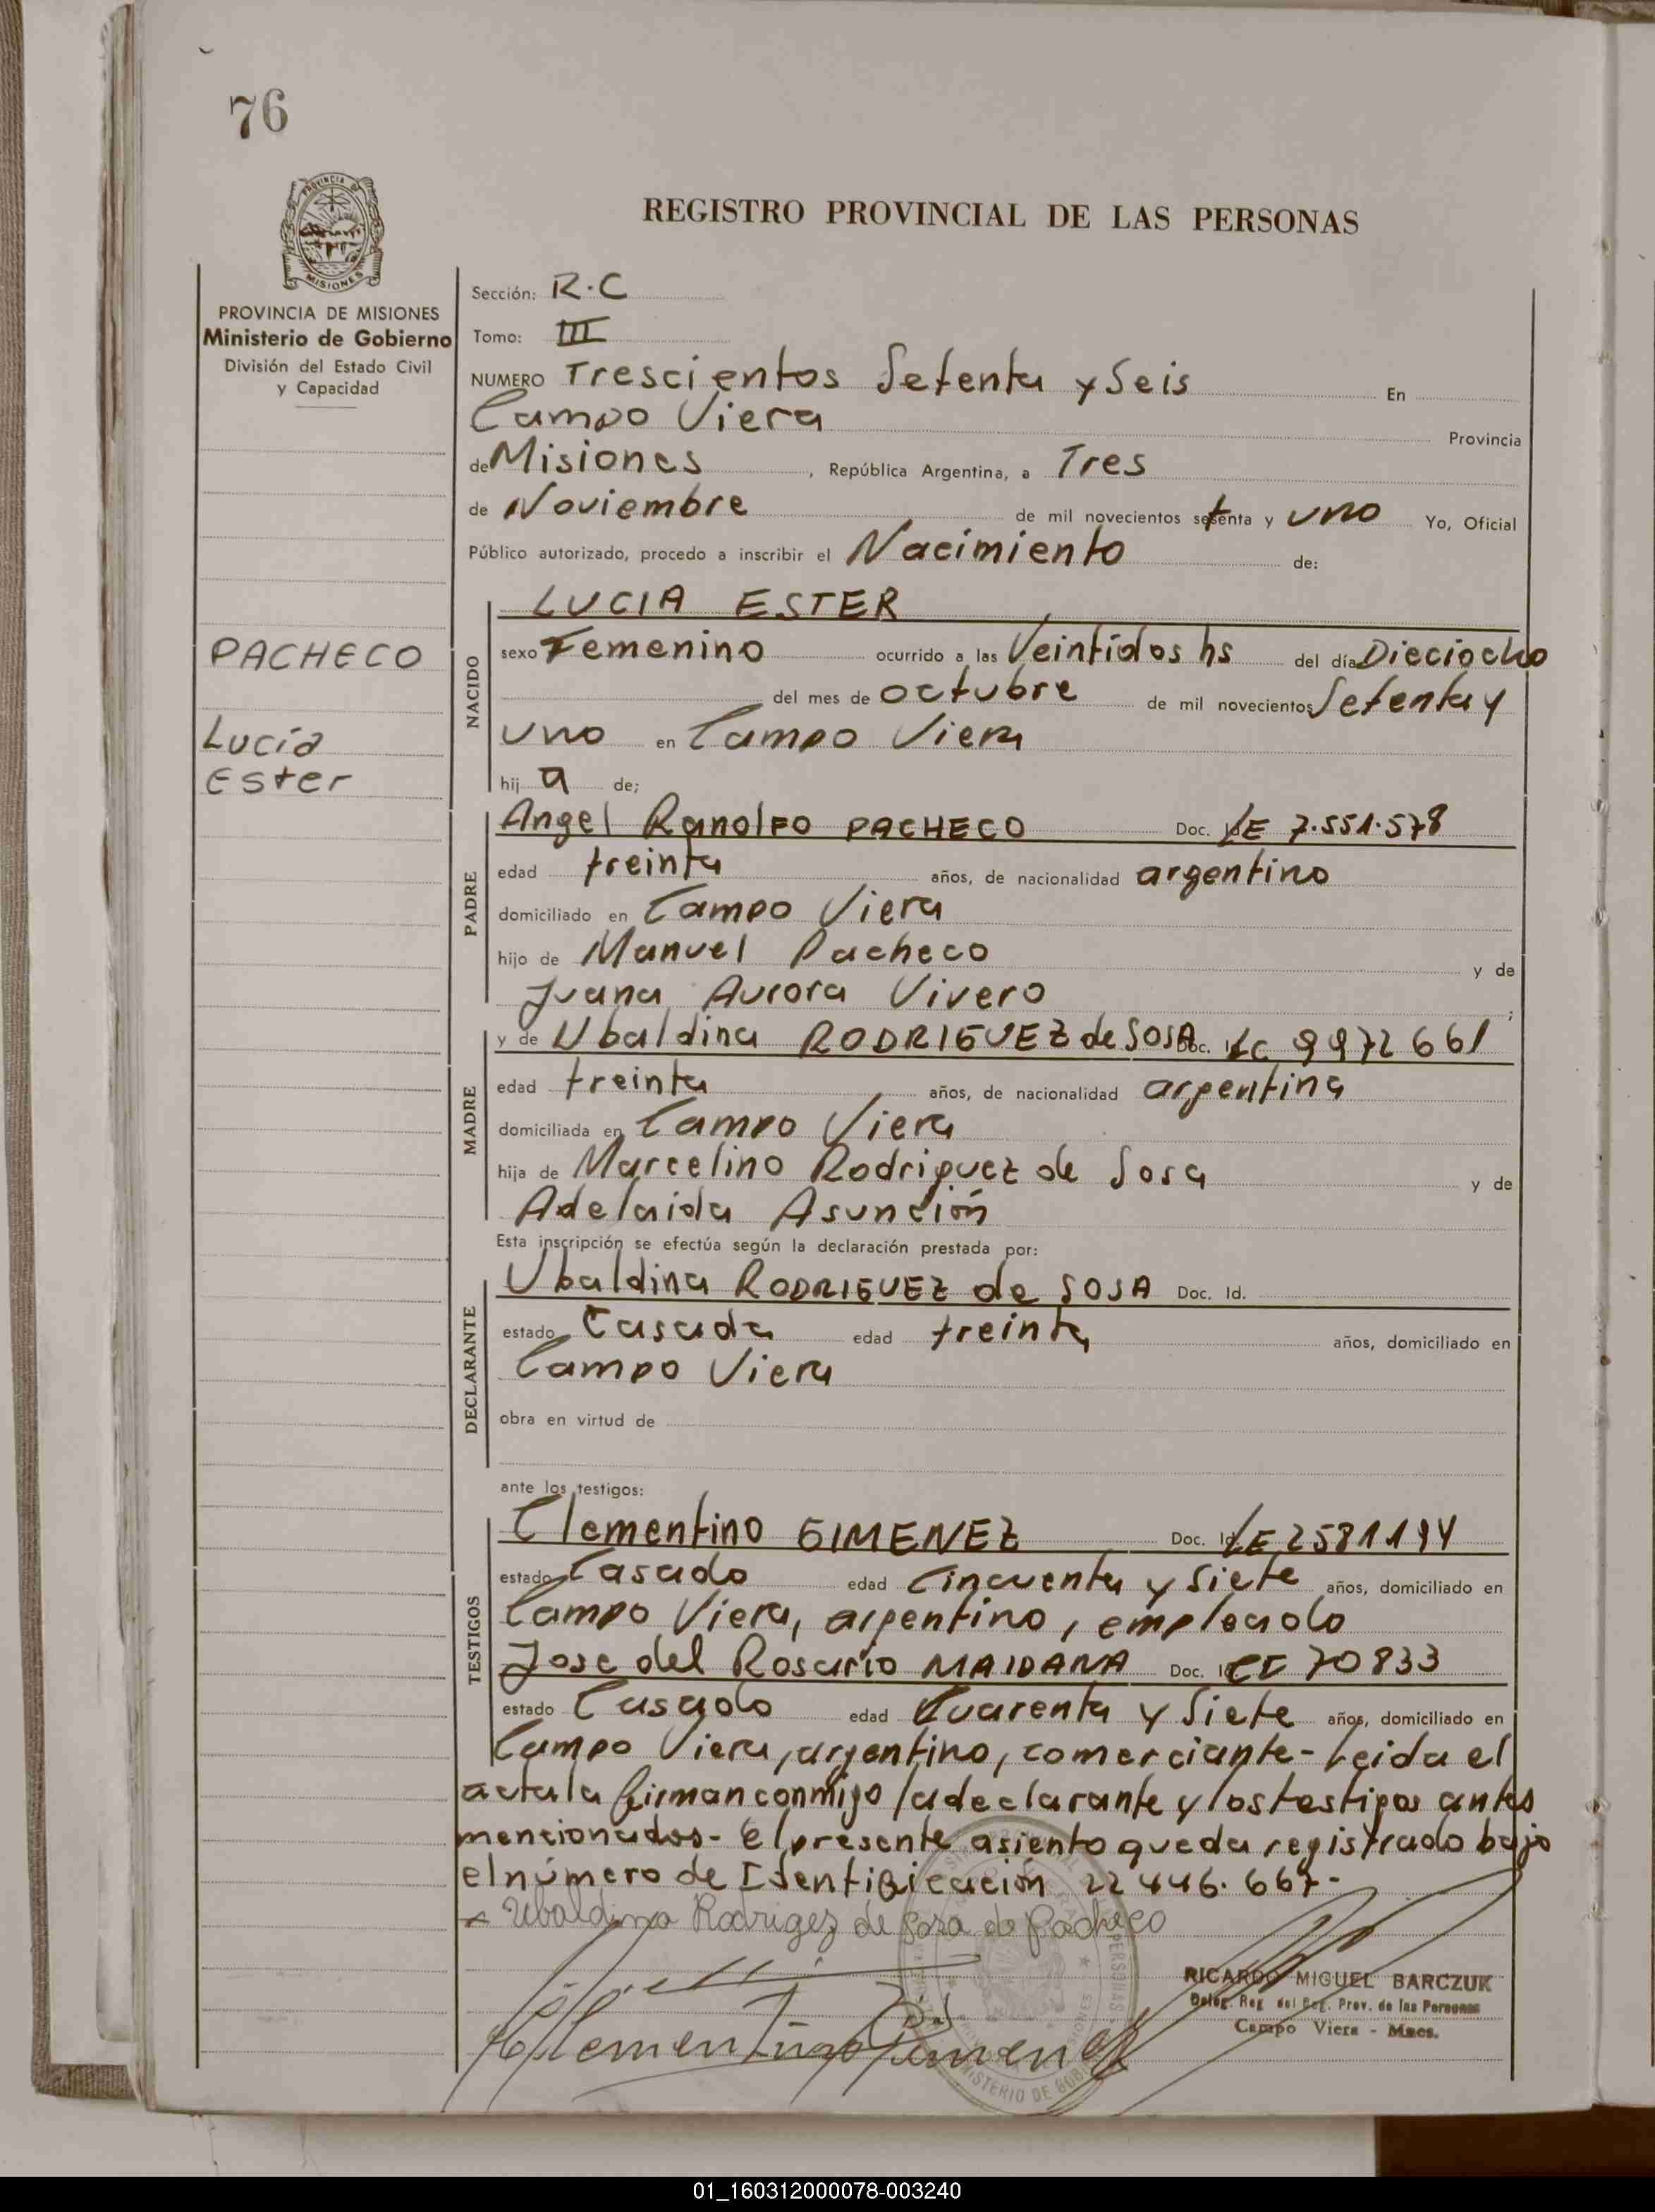 76
PROVINCIA DE MISIONES
PROVINCIA DE MISIONES
Ministerio de Gobierno
División del Estado Civil
y Capacidad
PACHECO
Lucía
Ester
REGISTRO PROVINCIAL DE LAS PERSONAS
Sección: R.C
Tomo: III
NUMERO Trescientos Setenta y Seis En
Campo Viera Provincia
de Misiones, República Argentina, a Tres
de Noviembre de mil novecientos setenta y uno Yo, Oficial
Público autorizado, procedo a inscribir el Nacimiento de:
NACIDO
LUCIA ESTER
sexo Femenino ocurrido a las Veintidos hs del día Dieciocho
del mes de octubre de mil novecientos Setenta y
uno en Campo Viera
hij a de;
PADRE
Angel Ranolfo PACHECO Doc. LE 7.551.578
edad treinta años, de nacionalidad argentino
domiciliado en Campo Viera
hijo de Manuel Pacheco y de
Juana Aurora Vivero ;
MADRE
y de Ubaldina RODRIGUEZ de SOSA Doc. LC 9972661
edad treinta años, de nacionalidad argentina
domiciliada en Campo Viera
hija de Marcelino Rodriguez de Sosa y de
Adelaida Asunción
Esta inscripción se efectúa según la declaración prestada por:
DECLARANTE
Ubaldina RODRIGUEZ de SOSA Doc. Id.
estado Casada edad treinta años, domiciliado en
Campo Viera
obra en virtud de
ante los testigos:
TESTIGOS
Clementino GIMENEZ Doc. Id LE 2581194
estado Casado edad Cincuenta y Siete años, domiciliado en
Campo Viera, argentino, empleado
Jose del Rosario MAIDANA Doc. I CI 70833
estado Casado edad Cuarenta y Siete años, domiciliado en
Campo Viera, argentino, comerciante- Leida el
acta la firman conmigo la declarante y los testigos antes
mencionados- El presente asiento queda registrado bajo
el número de Identificación 22446.667-
x Ubaldina Rodrigez de Sosa de Pacheco
Clementino Jimenez
RICARDO MIGUEL BARCZUK
Deleg. Reg del Reg. Prov. de las Personas
Campo Viera - Mnes.
MINISTERIO DE GOB
01_160312000078-003240